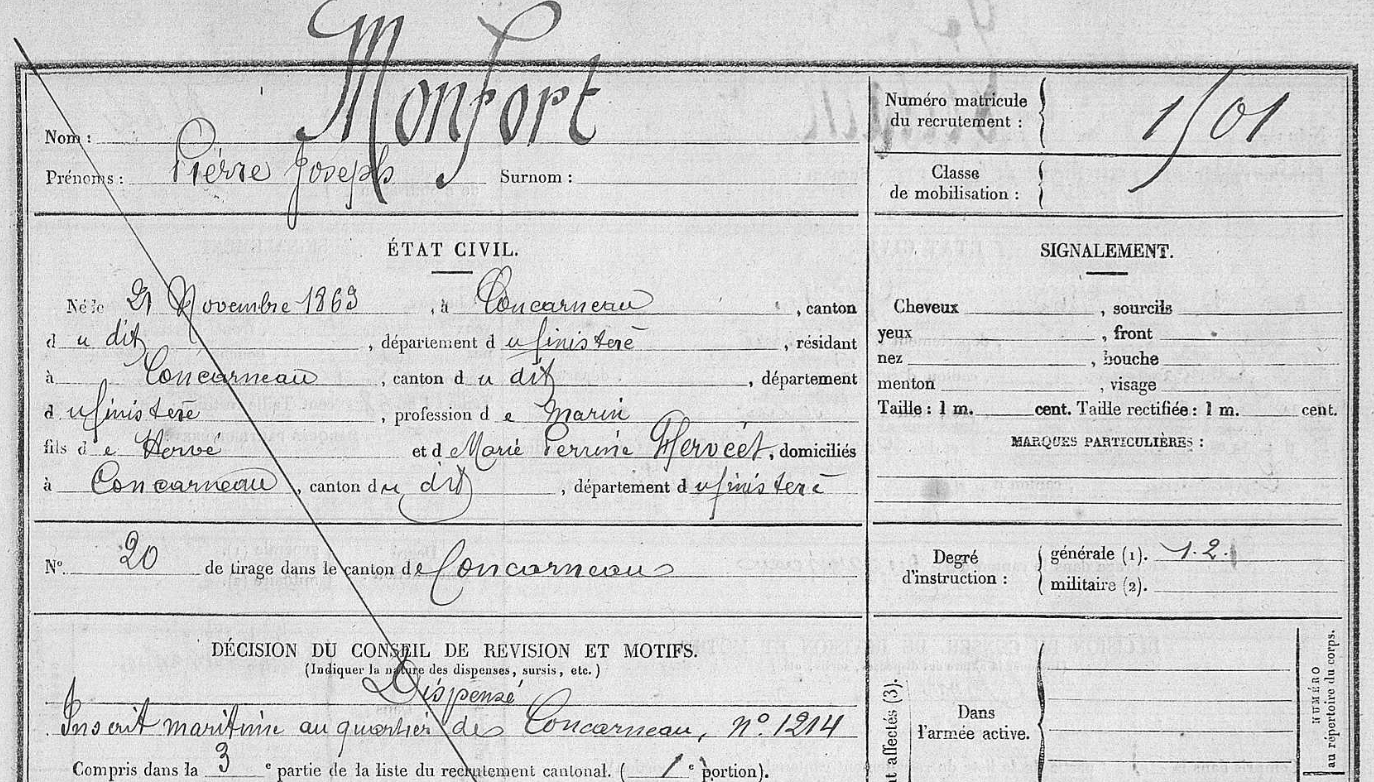 Nom : Monfort
Prénoms : Pierre Joseph Surnom :
Numéro matricule
du recrutement : 1501
Classe
de mobilisation :
ÉTAT CIVIL.
Né le 21 Novembre 1863, à Concarneau, canton
d u dit, département d u finistère, résidant
à Concarneau, canton d u dit, département
d u finistère, profession d e Marin
fils d e Hervé et d e Marie Perrine Hervéet, domiciliés
à Concarneau, canton d u dit, département d u finistère
N° 20 de tirage dans le canton de Concarneau
DÉCISION DU CONSEIL DE REVISION ET MOTIFS.
(Indiquer la nature des dispenses, sursis, etc.)
Dispensé
Inscrit maritime au quartier de Concarneau, n° 1214
Compris dans la 3 e partie de la liste du recrutement cantonal. ( 1 e portion).
SIGNALEMENT.
Cheveux , sourcils
yeux , front
nez , bouche
menton , visage
Taille : 1 m. cent. Taille rectifiée : 1 m. cent.
MARQUES PARTICULIÈRES :
Degré
d'instruction :
générale (1). 1.2.
militaire (2).
t affectés (3).
Dans
l'armée active.
NUMÉRO
au répertoire du corps.